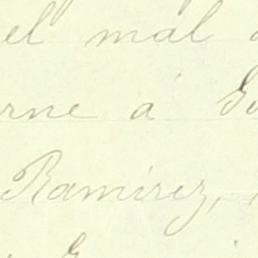 el mal
rne á
Ramirez,